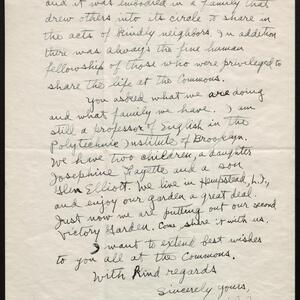 and it was embodied in a family that
drew others into its circle to share in
the acts of kindly neighbors. In addition
there was always the fine human
fellowship of those who were privileged to
share the life at the Commons.
You asked what we are doing
and what family we have. I am
still a professor of English in the
Polytechnic Institute of Brooklyn.
We have two children, a daughter
Josephine Fayette and a son
Glen Elliott. We live in Hempstead, L.I.,
and enjoy our garden a great deal.
Just now we are putting out our second
Victory Garden. Come share it with us.
I want to extend best wishes
to you all at the Commons.
With kind regards
Sincerely yours,